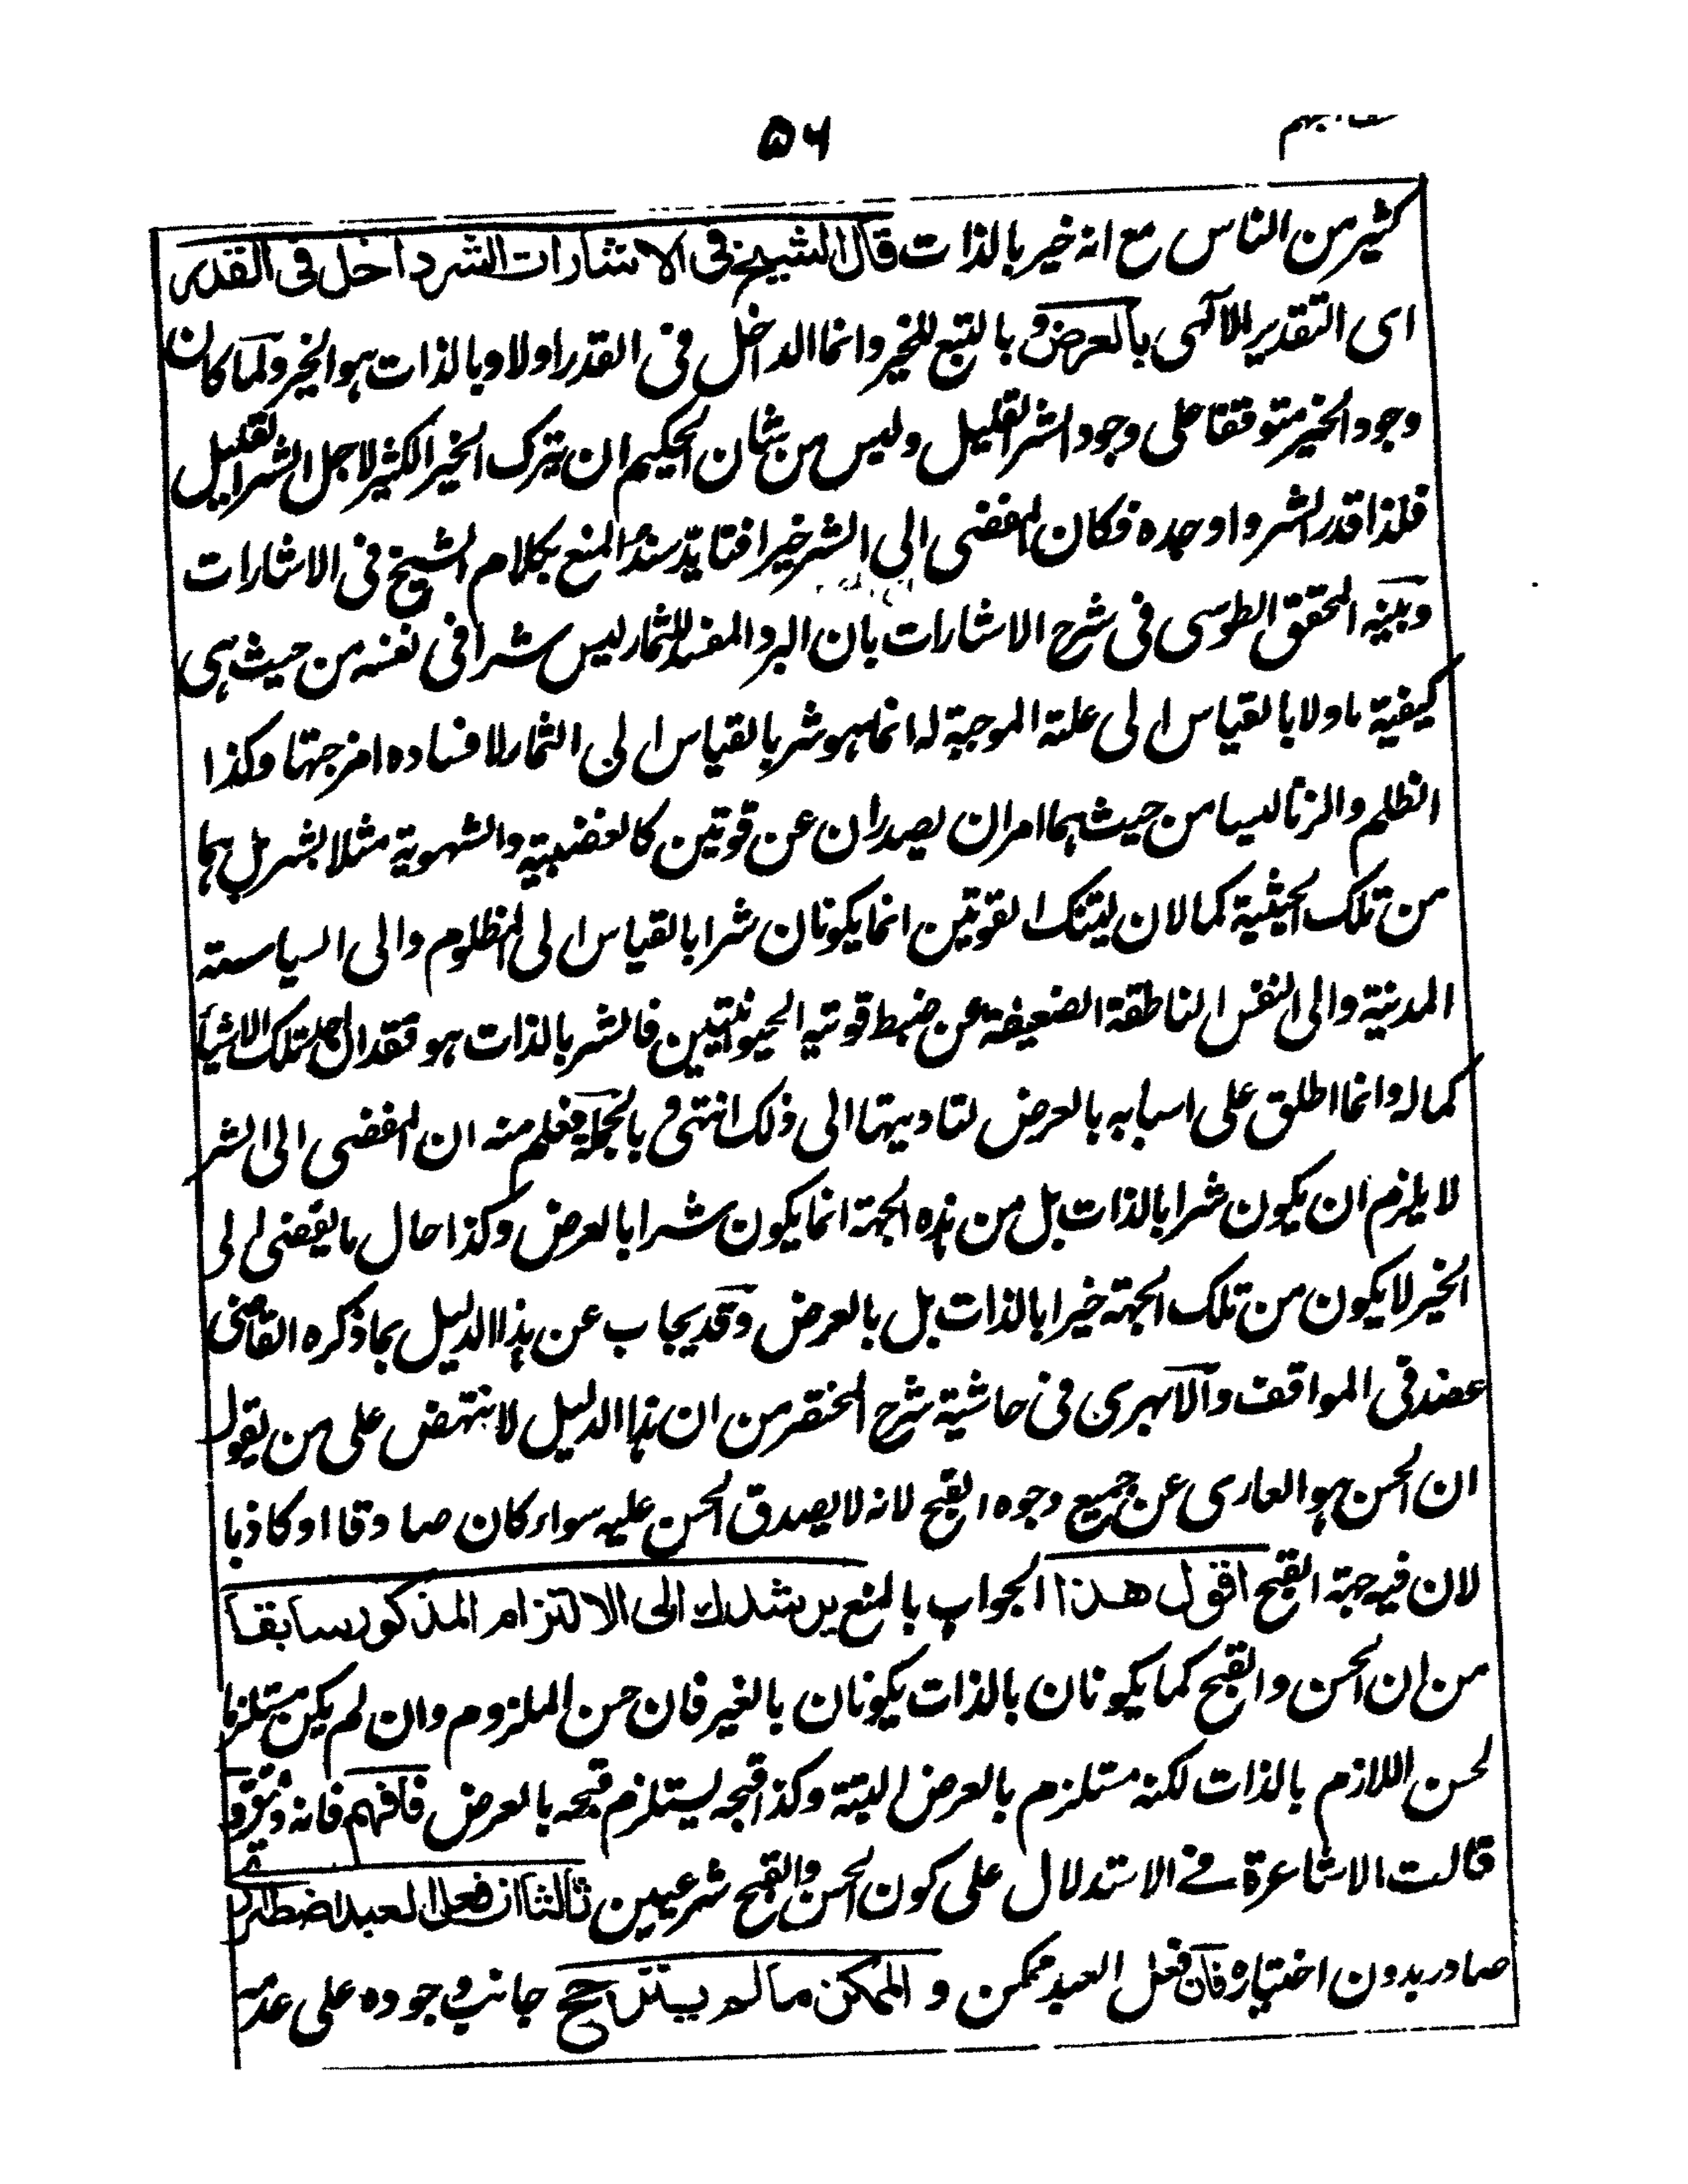 ٥٦
كثير من الناس مع انه خير بالذات قال الشيخ فى الاشارات الشر داخل فى القدر
اى التقدير الآلهى بالعرض و بالتبع للخير وانما الداخل فى القدر اولا وبالذات هو الخير ولما كان
وجود الخير متوقفا على وجود الشر القليل وليس من شان الحكيم ان يترك الخير الكثير لاجل الشر القليل
فلذا قدر الشر واوجده فكان المفضى الى الشر خيرا فتايّد سند المنع بكلام الشيخ فى الاشارات
وبينه المحقق الطوسى فى شرح الاشارات بان البرد المفسد للثمار ليس شرا فى نفسه من حيث هى
كيفية ما ولا بالقياس الى علته الموجبة له انما هو شر بالقياس الى الثمار لافساده امزجتها وكذا
الظلم والزنا ليسا من حيث هما امران يصدران عن قوتين كالغضبية والشهوية مثلا بشر بل هما
من تلك الحيثية كمالان لتينك القوتين انما يكونان شرا بالقياس الى المظلوم والى السياسة
المدنية والى النفس الناطقة الضعيفة عن ضبط قوتيه الحيوانيتين فالشر بالذات هو فقدان تلك الاشياء
كماله وانما اطلق على اسبابه بالعرض لتاديتها الى ذلك انتهى و بالجملة فعلم منه ان المفضى الى الشر
لا يلزم ان يكون شرا بالذات بل من هذه الجهة انما يكون شرا بالعرض وكذا حال ما يفضى الى
الخير لا يكون من تلك الجهة خيرا بالذات بل بالعرض وقد يجاب عن هذا الدليل بما ذكره القاضى
عضد فى المواقف والآبهرى فى حاشية شرح المختصر من ان هذا الدليل لا ينتهض على من يقول
ان الحسن هو العارى عن جميع وجوه القبح لانه لا يصدق الحسن عليه سواء كان صادقا او كاذبا
لان فيه جهة القبح اقول هذا الجواب بالمنع يرشدك الى الالتزام المذكور سابقا
من ان الحسن والقبح كما يكونان بالذات يكونان بالغير فان حسن الملزوم وان لم يكن مستلزما
لحسن اللازم بالذات لكنه مستلزم بالعرض البتة وكذا قبحه يستلزم قبحه بالعرض فافهم فانه دقيق و
قالت الاشاعرة فے الاستدلال على كون الحسن والقبح شرعيين ثالثا ان فعل العبد اضطرارى
صادر بدون اختياره فان فعل العبد ممكن و الممكن مالم يترجح جانب وجوده على عدمه